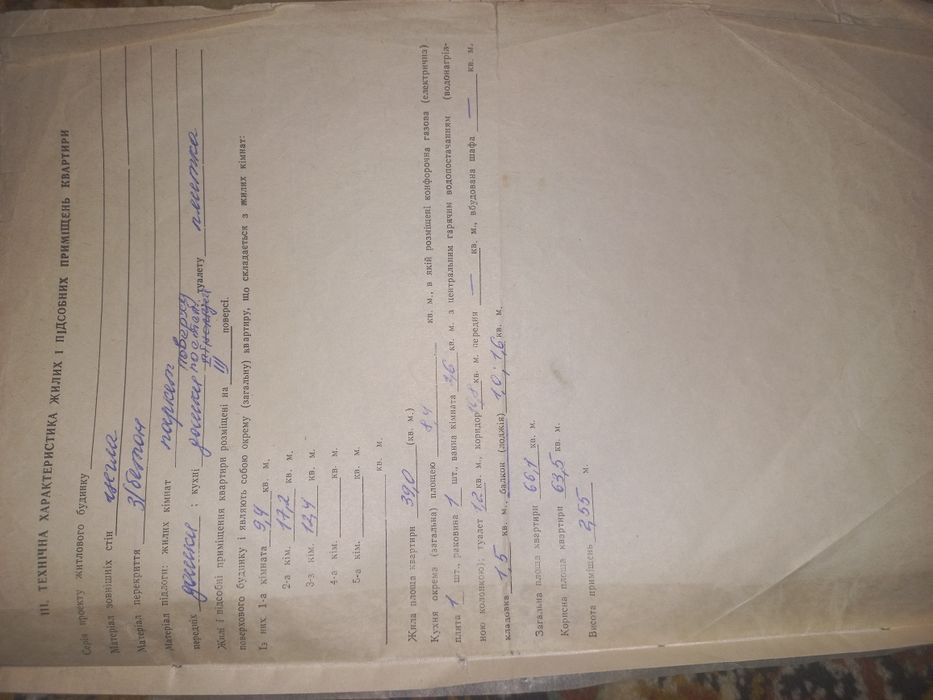 III. ТЕХНІЧНА ХАРАКТЕРИСТИКА ЖИЛИХ І ПІДСОБНИХ ПРИМІЩЕНЬ КВАРТИРИ
Серія проекту житлового будинку
Матеріал зовнішніх стін цегла
Матеріал перекриття з/бетон
Матеріал підлоги: жилих кімнат паркет поверху
передніх дошки ; кухні дошки туалету плитка
Жилі і підсобні приміщення квартири розміщені на III поверсі.
поверхового будинку і являють собою окрему (загальну) квартиру, що складається з жилих кімнат:
Із них 1-а кімната 9,4 кв. м.
2-а кім. 17,2 кв. м.
3-з кім. 12,4 кв. м.
4-а кім. кв. м.
5-а кім. кв. м.
кв. м.
Жила площа квартири 39,0 (кв. м.)
Кухня окрема (загальна) площею 8,4 кв. м., в якій розміщені конфорочна газова (електрична)
плита 1 шт., раковина 1 шт., ванна кімната 3,6 кв. м. з центральним гарячим водопостачанням (водонагрів-
ною колонкою); туалет 1,2 кв. м., коридор кв. м. передня — кв. м., вбудована шафа — кв. м.
кладовка 1,5 кв. м., балкон (лоджія) 1,0; 1,6 кв. м.
Загальна площа квартири 66,1 кв. м.
Корисна площа квартири 63,5 кв. м.
Висота приміщень 2,55 м.